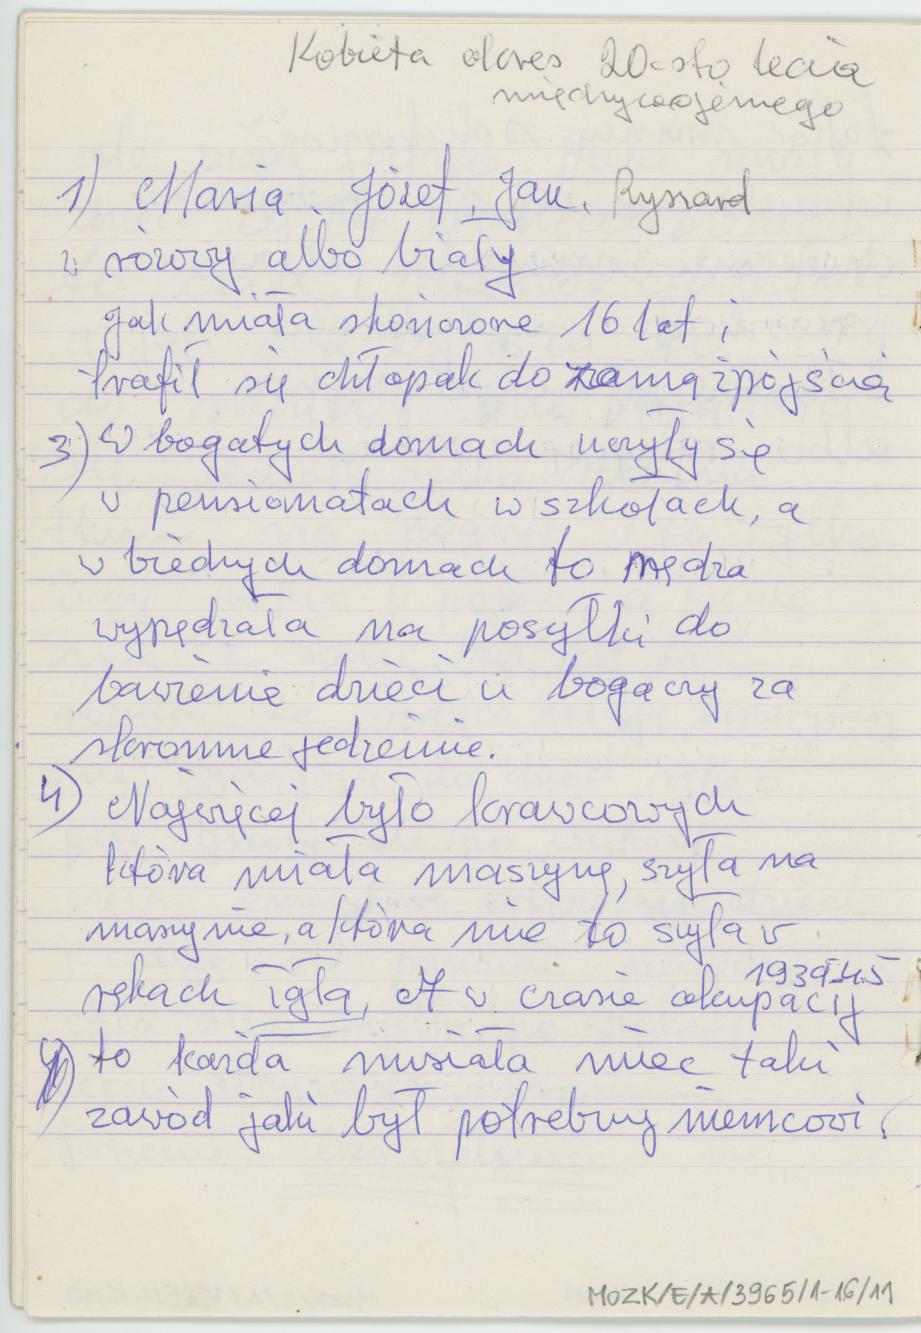 Kobieta okres 20-sto lecia
międzywojennego
1) Maria, Józef, Jan, Ryszard
2) różowy albo biały
jak miała skończone 16 lat i
trafił się chłopak do zamążpójścia
3) W bogatych domach uczyły się
w pensionatach w szkołach, a
w biednych domach to nędza
wypędzała na posyłki do
bawienie dzieci u bogaczy za
skromne jedzenie.
4) Najwięcej było krawcowych
która miała maszynę, szyła na
maszynie, a która nie to szyła w
rękach igłą, A w czasie okupacij 1939-45
to każda musiała miec taki
zawód jaki był potrebny niemcowi.
MOZK/E/A/3965/1-16/11